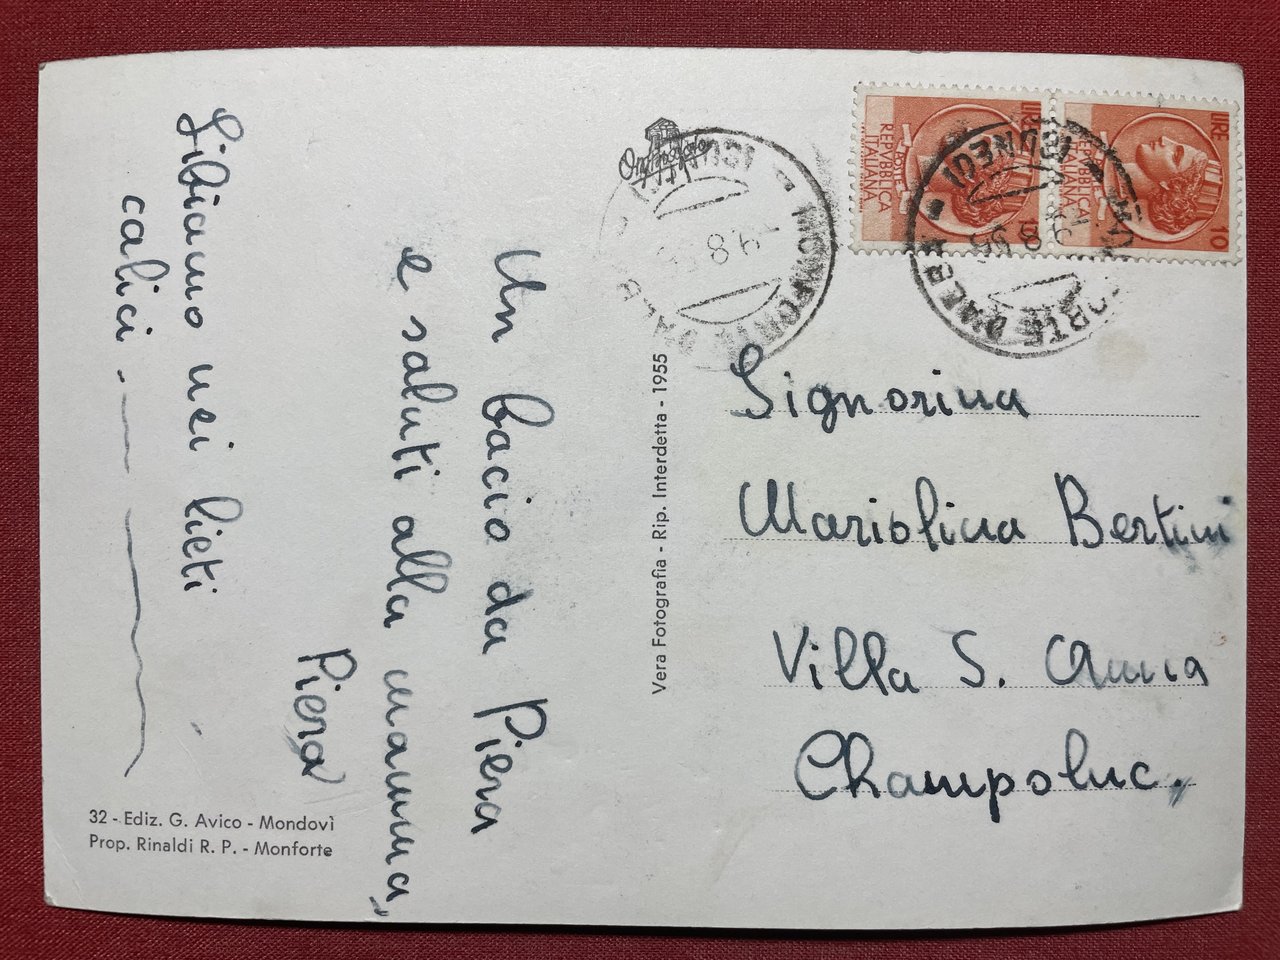 Un bacio da Piera
e saluti alla mamma
Piera
Libiamo nei lieti
calici
32 - Ediz. G. Avico - Mondovì
Prop. Rinaldi R. P. - Monforte
Vera Fotografia - Rip. Interdetta - 1955
MONFORTE D'ALBA
(CUNEO)
LIRE 10
REPVBBLICA
ITALIANA
LIRE 10
REPVBBLICA
ITALIANA
MONFORTE D'ALBA
(CUNEO)
Signorina
Mariolina Bertini
Villa S. Anna
Champoluc.